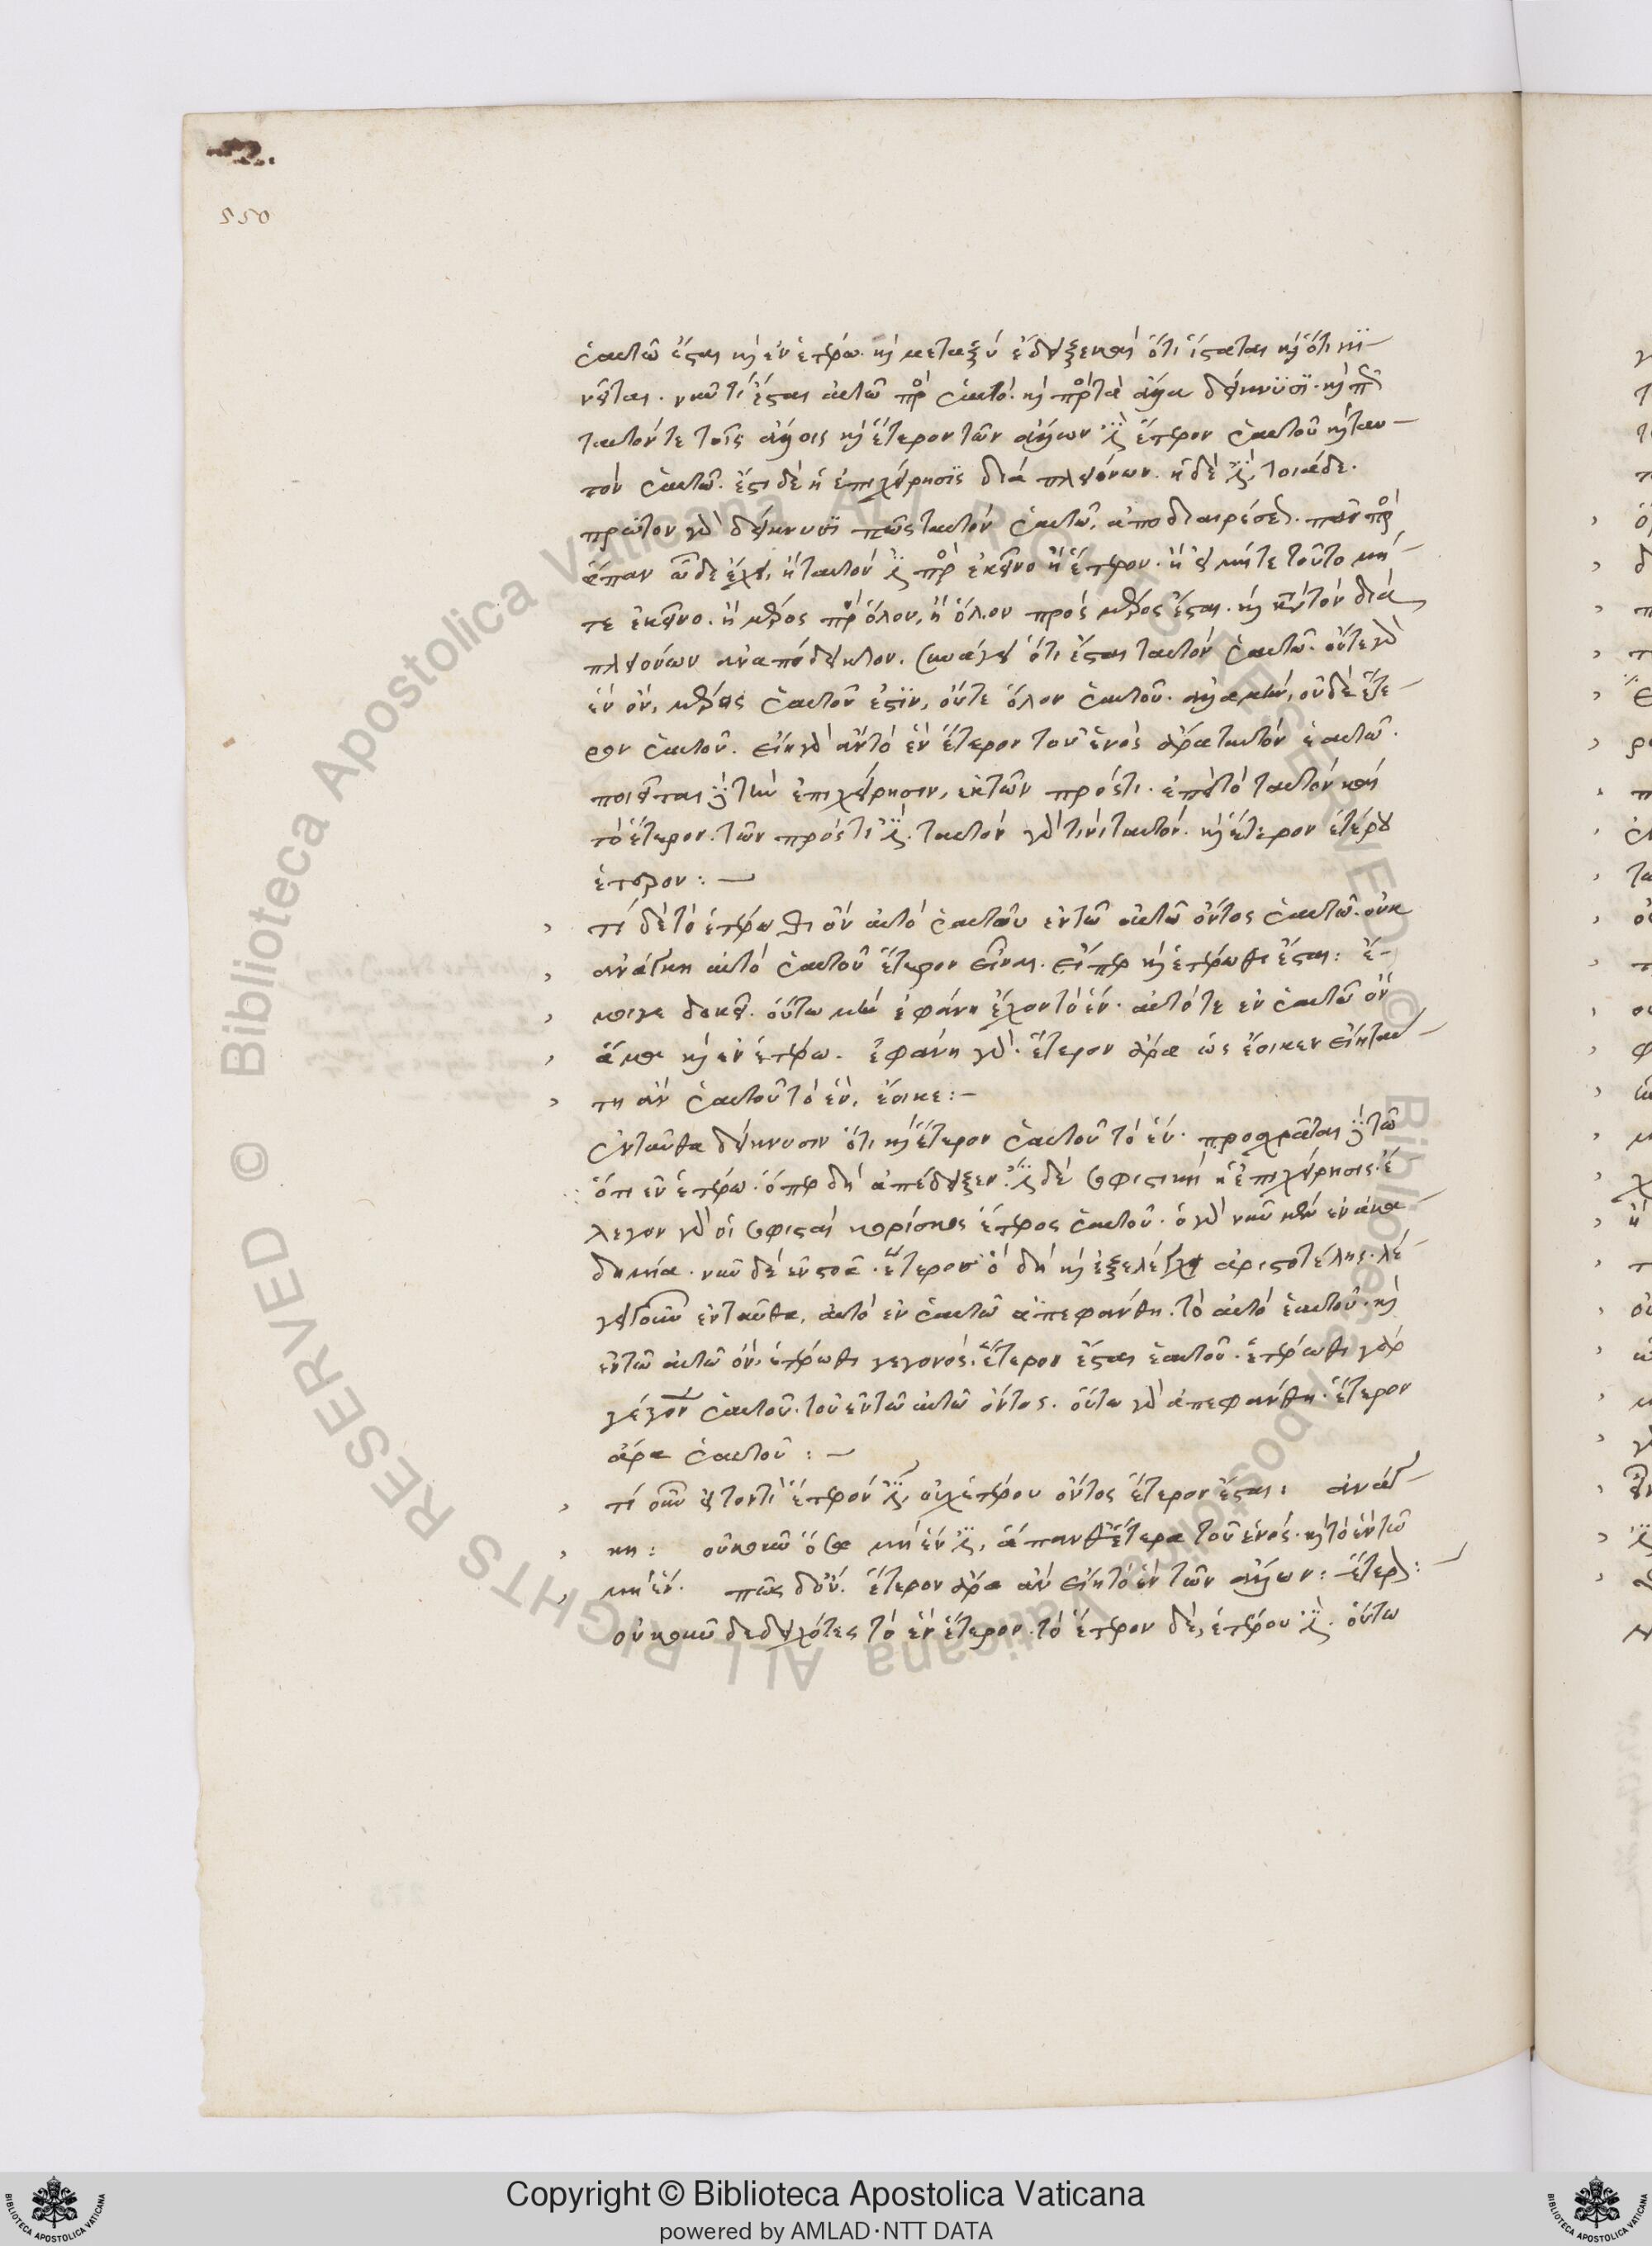 550
ἑαυτῶ ἔσται καὶ ἐν ἑτέρω. καὶ μεταξὺ ἐδείξε καὶ ὅτι ἵσταται καὶ ὅτι κι-
νεῖται. νῦν τί ἔσται αὐτῶ πρὸς ἑαυτό. καὶ πρὸς τὰ ἄλλα δείκνυσι. καὶ
ταυτόν τε τοῖς ἄλλοις καὶ ἕτερον τῶν ἄλλων ἐστὶ ἕτερον ἑαυτοῦ καὶ ταυ-
τὸν ἑαυτῶ. ἔστι δὲ ἡ ἐπιχείρησις διὰ πλειόνων. ἡ δέ ἐστι τοιάδε.
πρῶτον γὰρ δείκνυσι πῶς ταυτὸν ἑαυτῶ, ἀπὸ διαιρέσεως. πᾶν πρὸς
ἅπαν ὧδε ἔχει, ἢ ταυτόν ἐστι πρὸς ἐκεῖνο ἢ ἕτερον. ἢ εἰ μήτε τοῦτο μή-
τε ἐκεῖνο. ἢ μέρος πρὸς ὅλον, ἢ ὅλον πρὸς μέρος ἔσται. καὶ διὰ
πλειόνων ἀναπόδεικτον. συνάγει ὅτι ἔσται ταυτὸν ἑαυτῶ. οὔτε γὰρ
ἓν ὂν, μέρος ἑαυτοῦ ἐστὶν, οὔτε ὅλον ἑαυτοῦ. ἀλλὰ μὴν, οὐδὲ ἕτε-
ρον ἑαυτοῦ. εἴη γὰρ ἂν τὸ ἓν ἕτερον τοῦ ἑνὸς ἄρα ταυτὸν ἑαυτῶ.
ποιεῖται τὴν ἐπιχείρησιν, ἐκ τῶν πρός τι. ἐπεὶ τὸ ταυτὸν καὶ
τὸ ἕτερον τῶν πρός τι ἐστὶ. ταυτὸν γὰρ τινὶ ταυτόν. καὶ ἕτερον ἑτέρου
ἕτερον:—
τί δὲ τὸ ἑτέρωθι ὂν αὐτὸ ἑαυτοῦ ἐν τῶ αὐτῶ ὄντος ἑαυτῶ. οὐκ
ἀνάγκη αὐτὸ ἑαυτοῦ ἕτερον εἶναι. εἴπερ καὶ ἑτέρωθι ἔσται: ἔ-
μοιγε δοκεῖ. οὕτω μὴν ἐφάνη ἔχον τὸ ἕν. αὐτό τε ἐν ἑαυτῶ ὂν
ἅμα καὶ ἐν ἑτέρω. ἐφάνη γὰρ. ἕτερον ἄρα ὡς ἔοικεν εἴη ταύ-
τη ἂν ἑαυτοῦ τὸ ἕν. ἔοικε:—
ἐνταῦθα δείκνυσιν ὅτι καὶ ἕτερον ἑαυτοῦ τὸ ἕν. προσχρᾶται τῶ
ὅτι ἐν ἑτέρω. ὅπερ δὴ ἀπέδειξεν. ἔστι δὲ σοφιστικὴ ἡ ἐπιχείρησις. ἔ-
λεγον γὰρ οἱ σοφισταὶ κορίσκος ἕτερος ἑαυτοῦ. ὁ γὰρ νῦν μὲν ἐν ἀκα-
δημία. νῦν δὲ ἐν στοᾶ. ἕτερον ὃ δὴ καὶ ἐξελέγχει ἀριστοτέλης. λέ-
γει γοῦν ἐνταῦθα, αὐτὸ ἐν ἑαυτῶ ἀπεφάνθη. τὸ αὐτὸ ἑαυτοῦ. καὶ
ἐν τῶ αὐτῶ ὂν. ἑτέρωθι γεγονός. ἕτερον ἔσται ἑαυτοῦ. ἑτέρωθι γὰρ
γέγονεν ἑαυτοῦ. τοῦ ἐν τῶ αὐτῶ ὄντος. οὕτω γὰρ ἀπεφάνθη. ἕτερον
ἄρα ἑαυτοῦ:—
τί οὖν εἴ του τὶ ἕτερόν ἐστι, οὐχ ἑτέρου ὄντος ἕτερον ἔσται; ἀνάγ-
κη: οὐκοῦν ὅσα μὴ ἕν ἐστι, ἅπανθ' ἕτερα τοῦ ἑνός. καὶ τὸ ἓν τῶν
μὴ ἕν. πῶς δ' οὔ. ἕτερον ἄρα ἂν εἴη τὸ ἓν τῶν ἄλλων: ἕτερον:
οὐκοῦν δεδειχότες τὸ ἓν ἕτερον. τὸ ἕτερον δὲ, ἑτέρου ἐστὶ. οὕτω
Copyright © Biblioteca Apostolica Vaticana
powered by AMLAD·NTT DATA
© Biblioteca Apostolica Vaticana ALL RIGHTS RESERVED